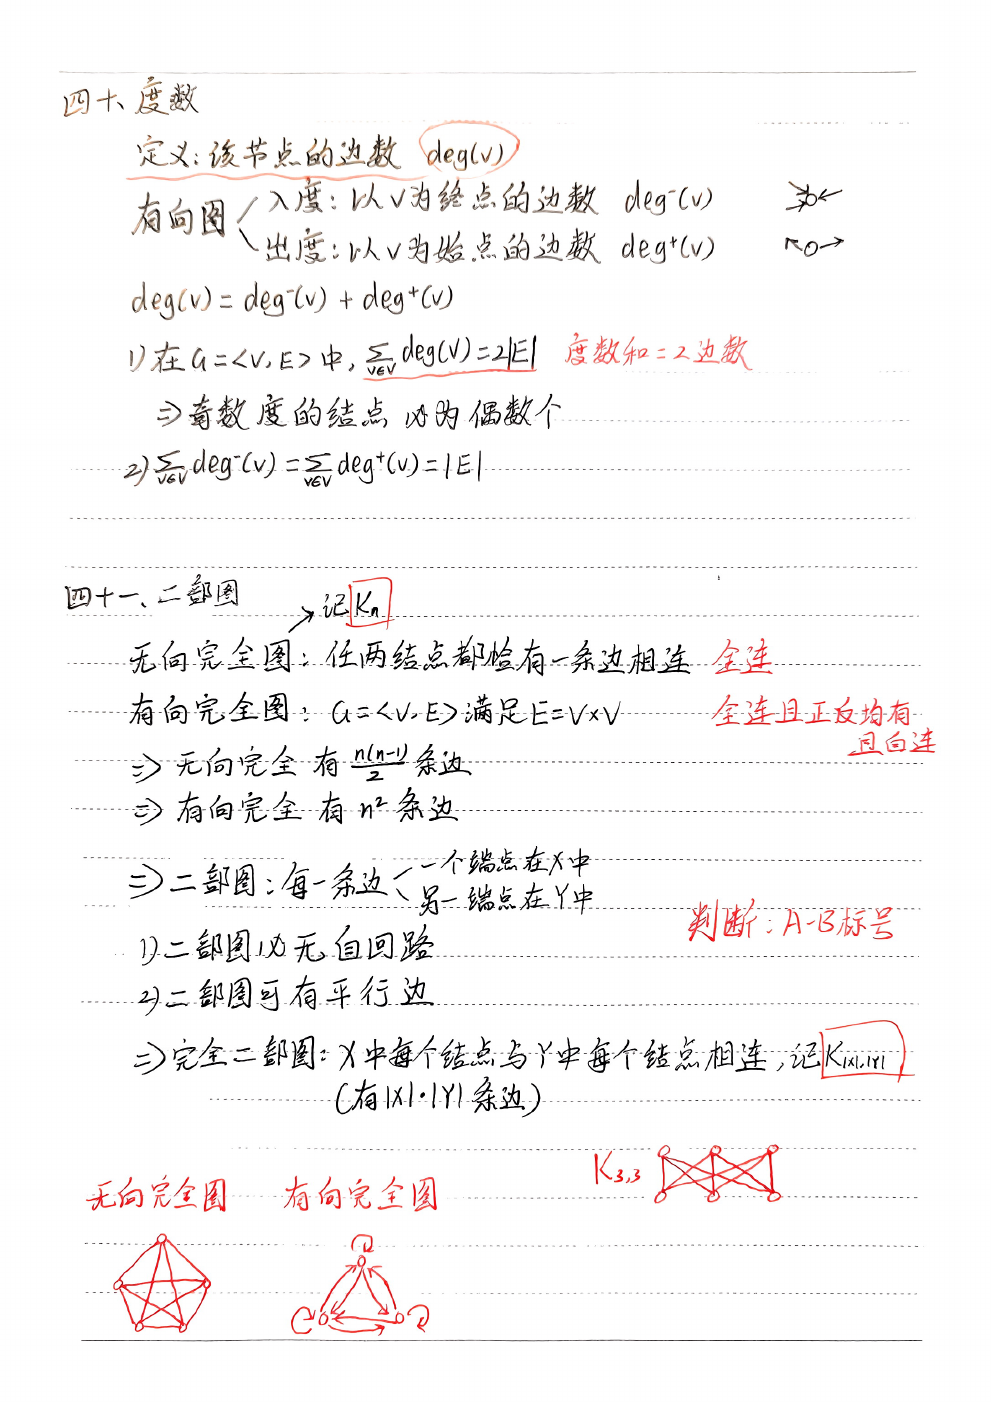 四十、度数
定义:该节点的边数 deg(v)
有向图 入度:以v为终点的边数 deg⁻(v)
出度:以v为始点的边数 deg⁺(v)
deg(v) = deg⁻(v) + deg⁺(v)
1) 在G=<V,E>中, ∑v∈V deg(v)=2|E| 度数和=2边数
⇒ 奇数度的结点必为偶数个
2) ∑v∈V deg⁻(v) = ∑v∈V deg⁺(v) = |E|
四十一、二部图
→记 Kn
无向完全图: 任两结点都恰有一条边相连 全连
有向完全图: G=<V,E>满足E=V×V 全连且正反均有
且自连
⇒ 无向完全 有 n(n-1)/2 条边
⇒ 有向完全 有 n² 条边
⇒ 二部图: 每一条边 一个端点在X中
另一端点在Y中
判断: A-B标号
1) 二部图必无自回路
2) 二部图可有平行边
⇒ 完全二部图: X中每个结点与Y中每个结点相连,记K|X|,|Y|
(有|X|·|Y|条边)
K3,3
无向完全图 有向完全图